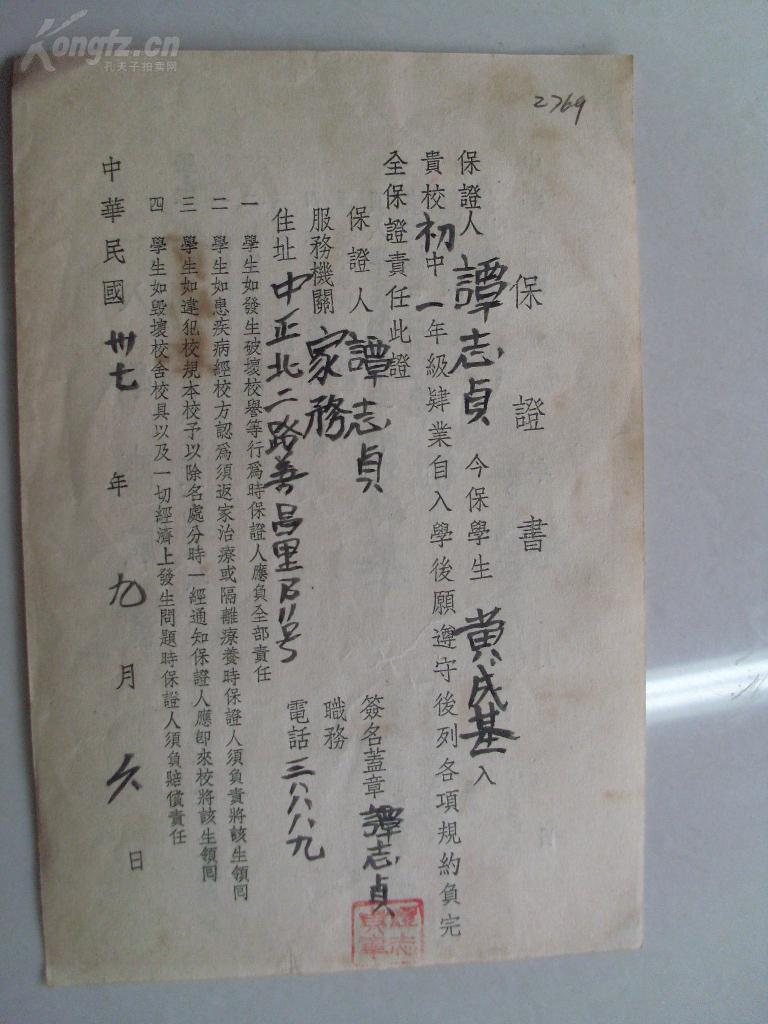 Kongfz.cn
孔夫子拍卖网
2769
保證書
保證人 譚志貞 今保學生 黄成基 入
貴校初中一年級肄業自入學後願遵守後列各項規約負完
全保證責任此證
保證人 譚志貞 簽名蓋章 譚志貞
服務機關 家務 職務
住址 中正北二路善昌里 号 電話 三八八八九
一 學生如發生破壞校譽等行爲時保證人應負全部責任
二 學生如患疾病經校方認爲須返家治療或隔離療養時保證人須負責將該生領囘
三 學生如違犯校規本校予以除名處分時一經通知保證人應卽來校將該生領囘
四 學生如毀壞校舍校具以及一切經濟上發生問題時保證人須負賠償責任
中華民國 卅七 年 九 月 日